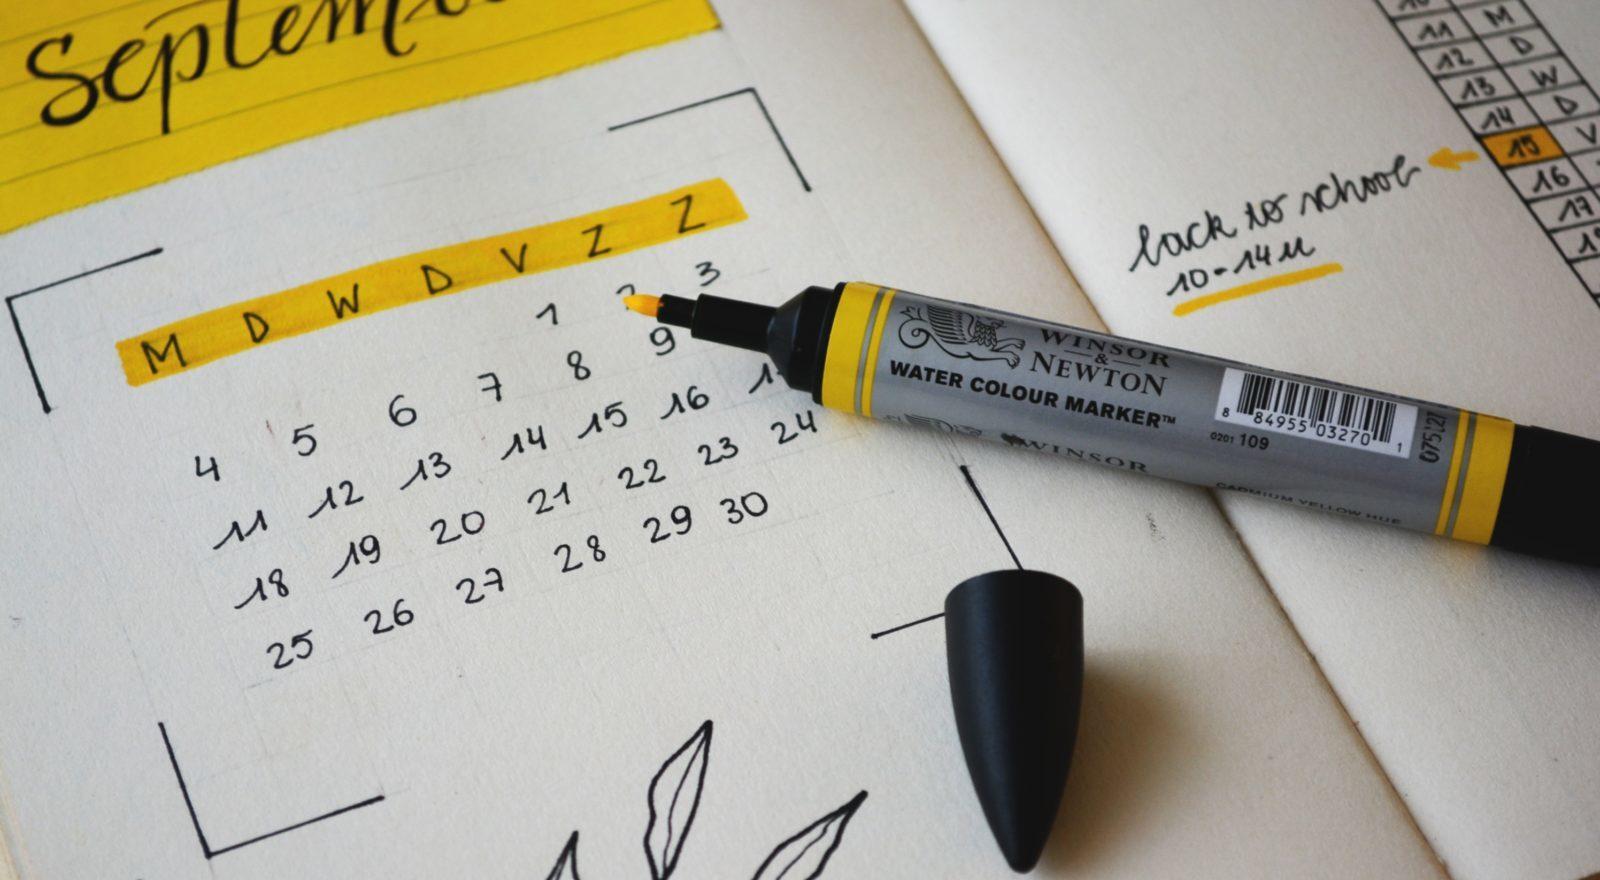 Septemb
M D W D V Z Z
1 2 3
4 5 6 7 8 9
11 12 13 14 15 16
18 19 20 21 22 23 24
25 26 27 28 29 30
10
11 M
12 D
13 W
14 D
15 V
16
17
back to school
10-14u
WINSOR
&
NEWTON
WATER COLOUR MARKER™
WINSOR
CADMIUM YELLOW HUE
0201 109
8 84955 03270 1